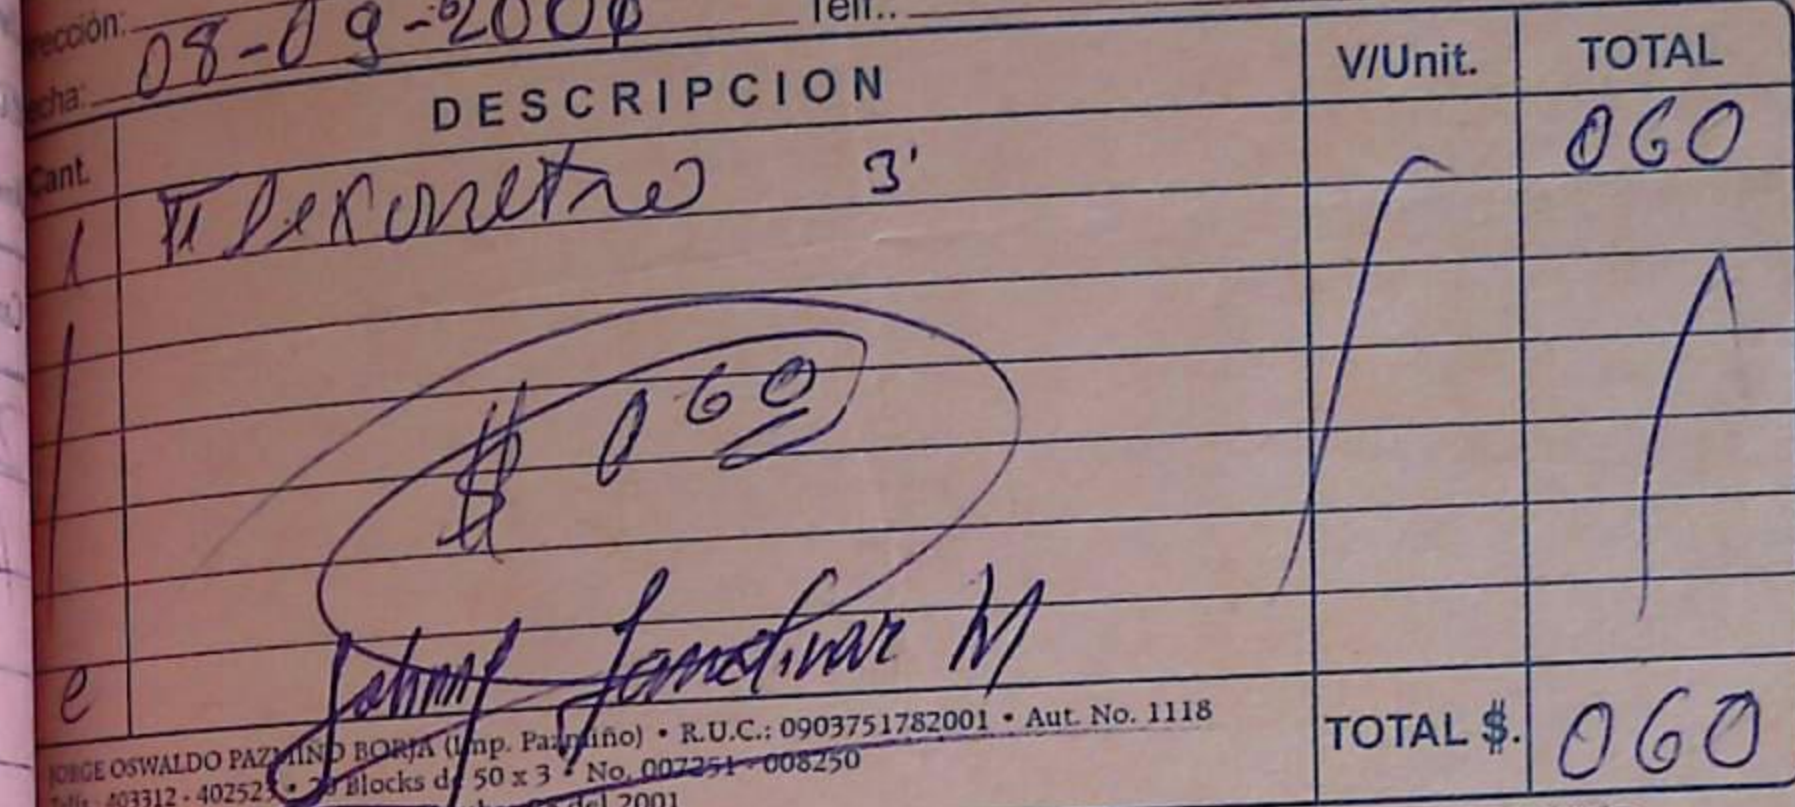 ección: Telf.:
echa: 08-09-200
Cant. DESCRIPCION V/Unit. TOTAL
1 Flexometro 3' 060
$ 060
Johnny M
JORGE OSWALDO PAZMIÑO BORJA (Imp. Pazmiño) • R.U.C.: 0903751782001 • Aut. No. 1118
Telfs.: 403312 - 40252 • 20 Blocks de 50 x 3 • No. 007251 - 008250
del 2001
TOTAL $. 060